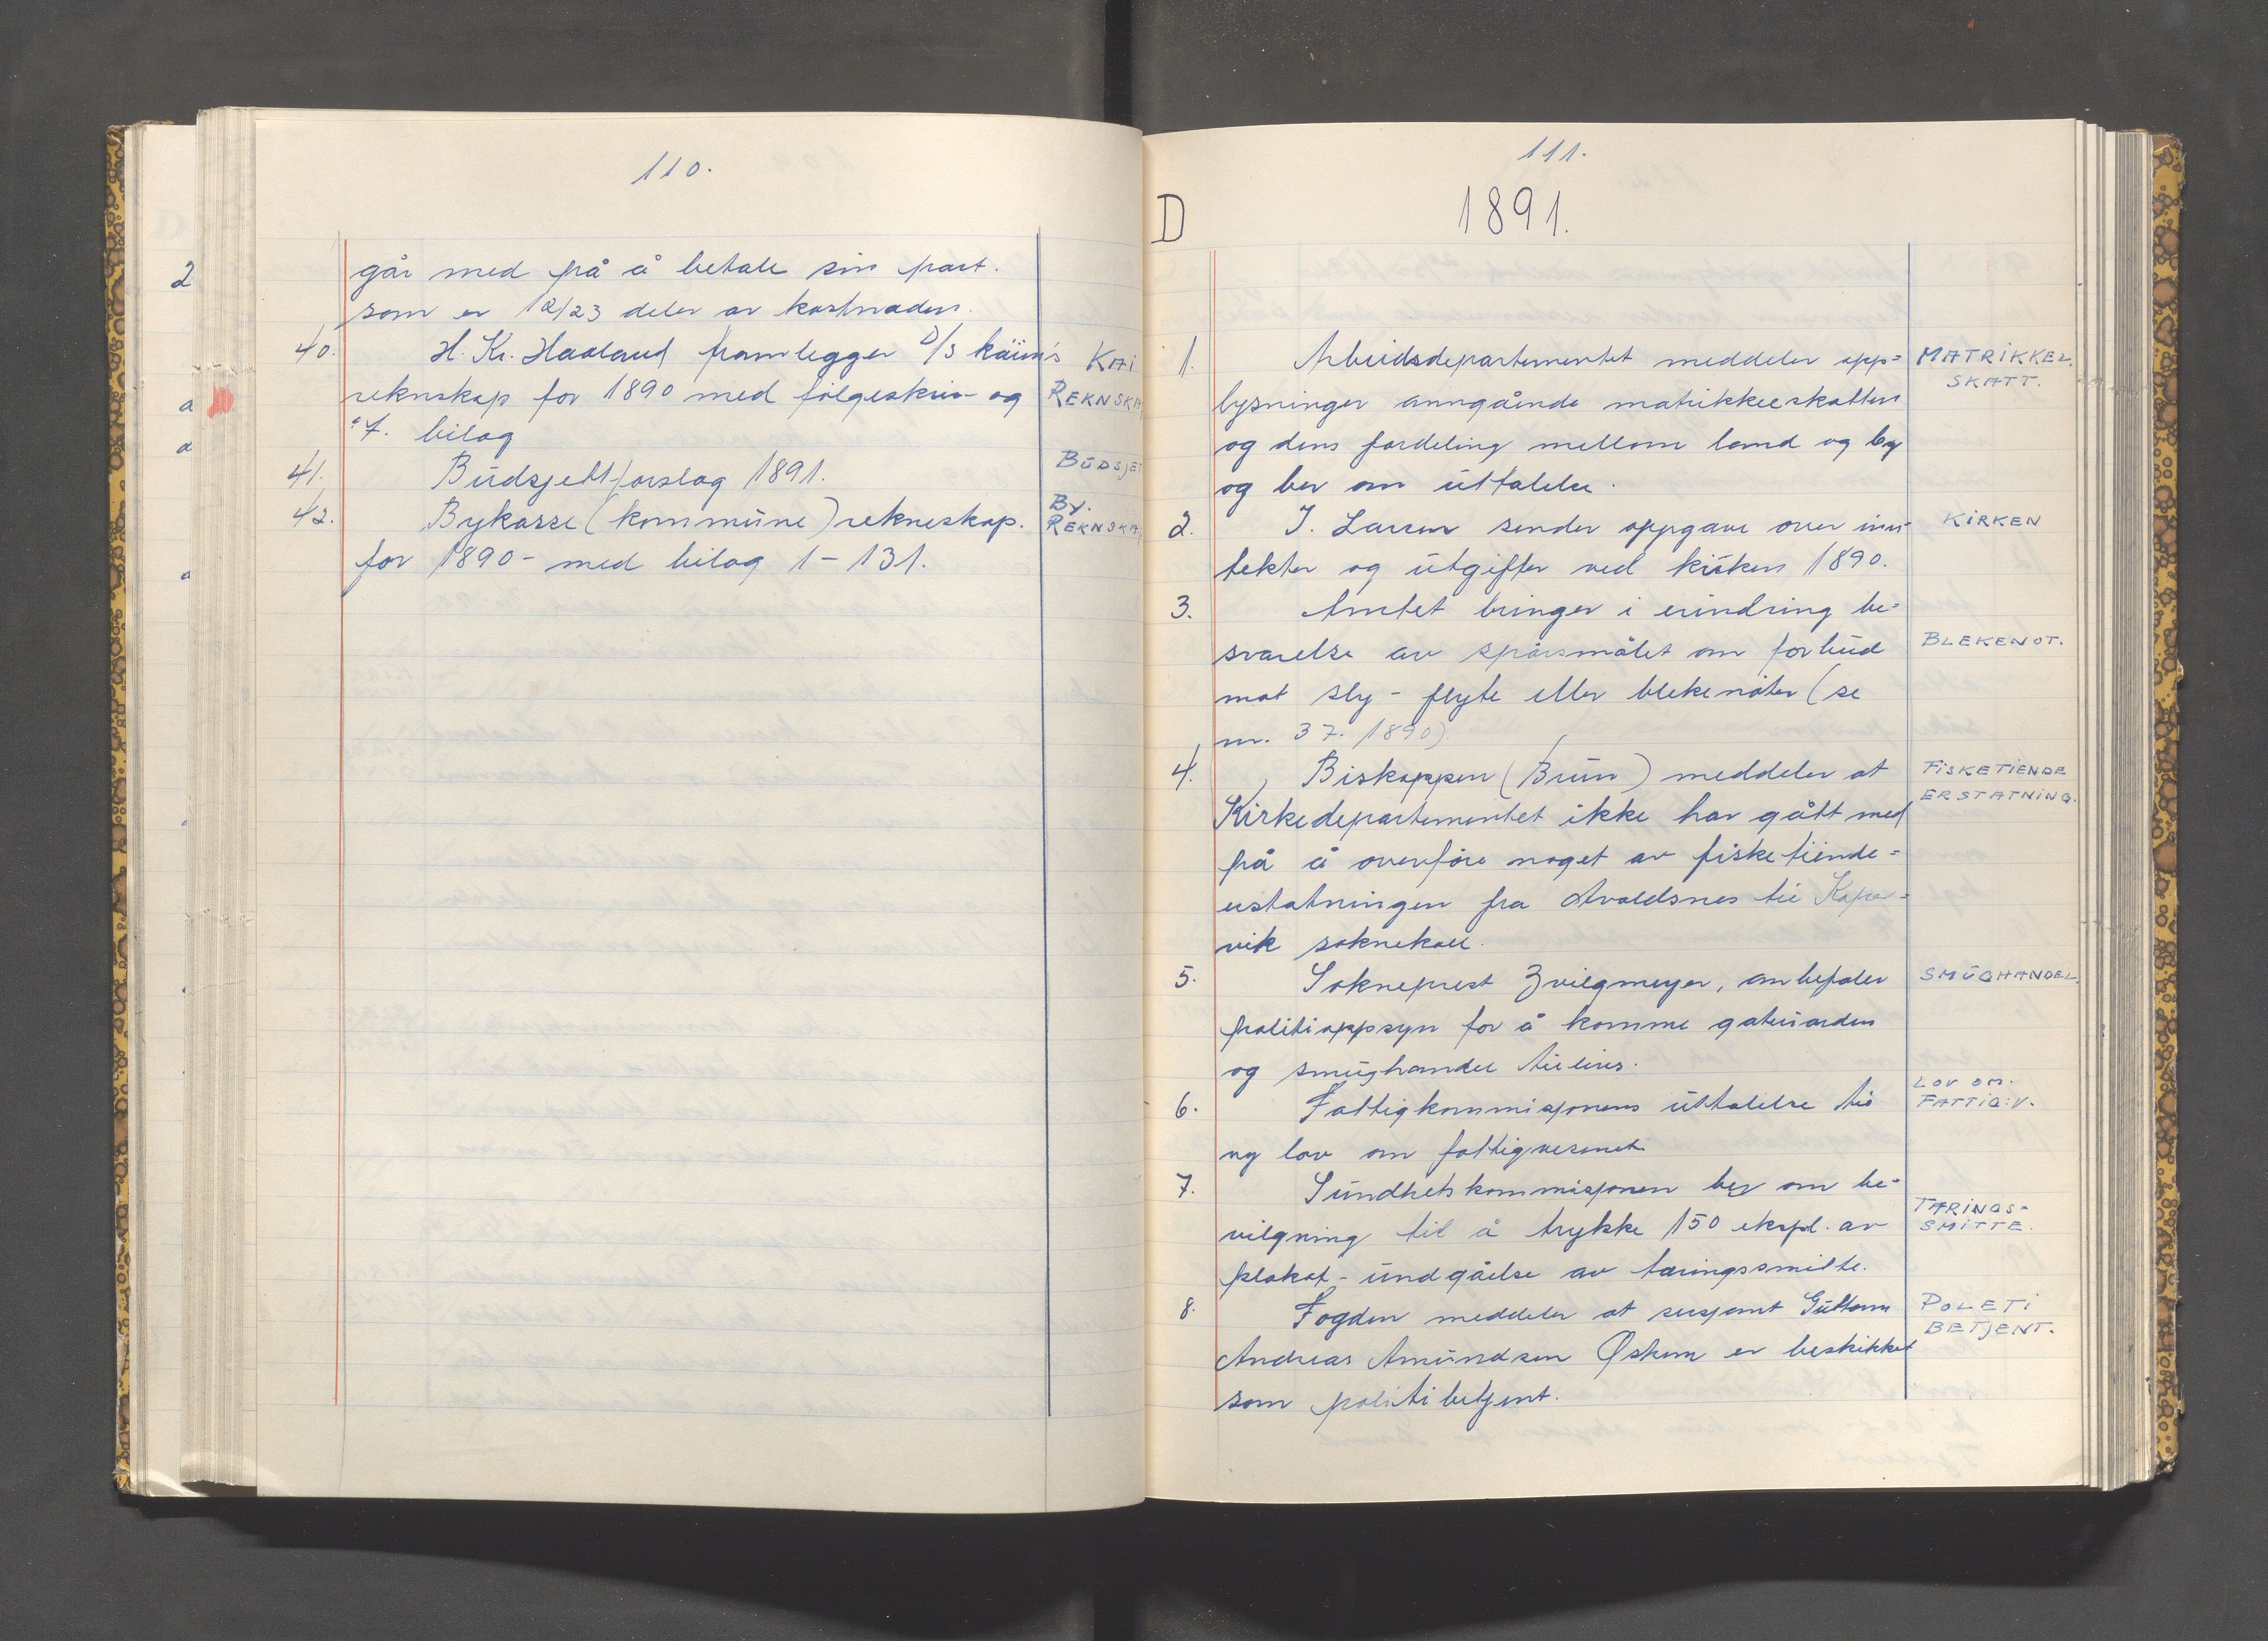 110.
går med på å betale sin part.
som er 12/23 deler av kostnaden.
40. H. Kr. Haaland framlegger D/S kaien's
KAI
reknskap for 1890 med følgeskriv og
REKNSKA
7. bilag
41. Budsjettforslag 1891.
BUDSJET
42. Bykasse (kommune) rekneskap.
BY.
REKNSKA
for 1890 - med bilag 1 - 131.
111.
D 1891.
1. Arbeidsdepartementet meddeler opp=
MATRIKKEL.
SKATT.
lysninger anngående matrikkelskatten
og dens fordeling mellom land og by
og ber om uttalelse.
2. J. Larsen sender oppgave over inn-
KIRKEN
tekter og utgifter ved kirken 1890.
3. Amtet bringer i erindring be=
svarelse av spørsmålet om forbud
BLEKENOT.
mot sly - flyte eller blekenøter (se
nr. 37. 1890).
4. Biskoppen (Brun) meddeler at
FISKETIENDE
ERSTATNING.
Kirkedepartementet ikke har gått med
på å overføre noget av fisketiende=
erstatningen fra Avaldsnes til Kopa=
vik soknekall.
5. Sokneprest Zvilgmeyer, anbefaler
SMUGHANDEL.
politioppsyn for å komme gateuorden
og smughandel tillivs.
6. Fattigkommisjonens uttalelse til
LOV OM.
FATTIG:V.
ny lov om fattigvesenet.
7. Sundhetskommisjonen ber om be-
vilgning til å trykke 150 ekspl. av
TÆRINGS-
SMITTE.
plakat - undgåelse av tæringssmitte.
8. Fogden meddeler at sersjant Guttorm
POLETI
BETJENT.
Andreas Amundsen Østrem er beskikket
som politibetjent.